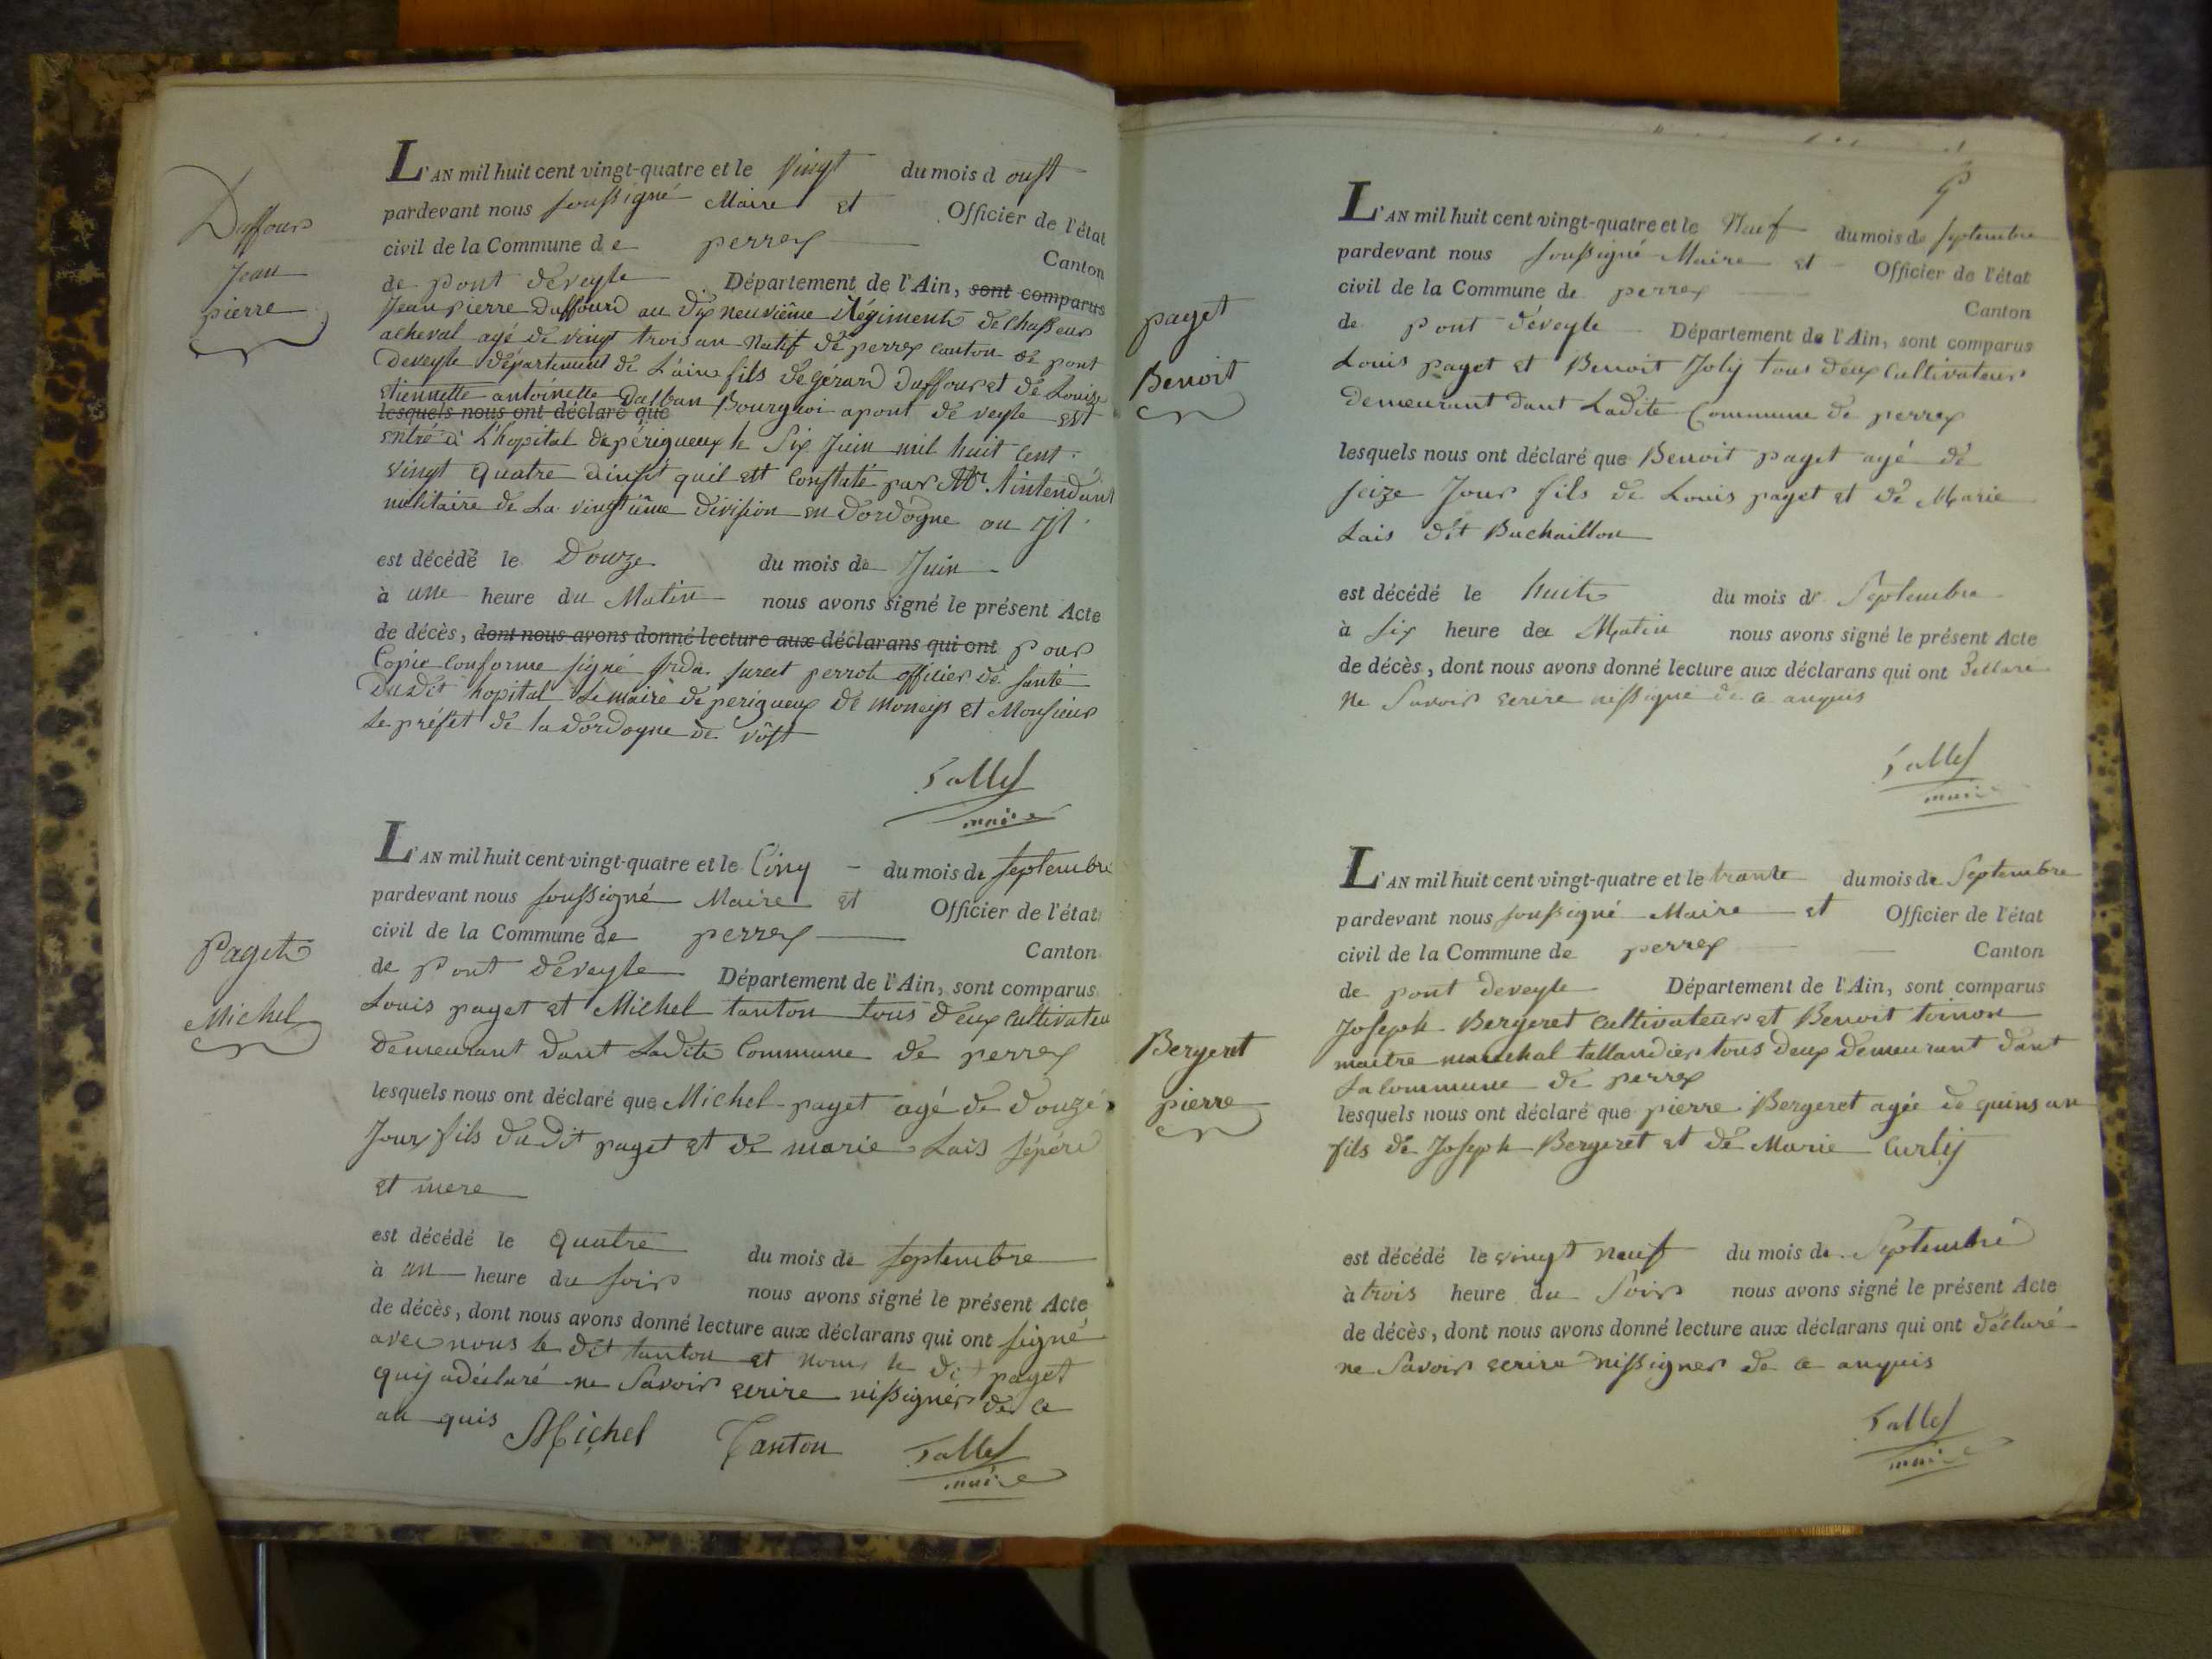 Duffour
Jean
pierre
L'AN mil huit cent vingt-quatre et le vingt du mois d oust
pardevant nous soussigné Maire et Officier de l'état
civil de la Commune de perrex Canton
de pont deveyle Département de l'Ain, sont comparus
Jean pierre Duffour au dix neuvième Régiment de Chasseur
acheval agé de vingt trois an natif de perrex canton de pont
deveyle département de L'ain fils de Gérard Duffour et de Louise
Etiennette antoinette Dalban Bourgeoi apont de veyle est
lesquels nous ont déclaré que
entré à L'hopital de périgueux le Six Juin mil huit Cent
vingt quatre ainsit quil est Constaté par Mr. l'intendant
militaire de La vingtième division en Dordogne ou jl
est décédé le Douze du mois de Juin
à une heure du Matin nous avons signé le présent Acte
de décès, dont nous avons donné lecture aux déclarans qui ont pour
Copie Conforme signé perrot officier de santé
Dudit hopital Le maire de perigueux de et Monsieur
Le préfet de la Dordogne de
Tallef
maire
Paget
Michel
L'AN mil huit cent vingt-quatre et le Cinq du mois de septembre
pardevant nous soussigné Maire et Officier de l'état
civil de la Commune de perrex Canton
de Pont déveyle Département de l'Ain, sont comparus
Louis paget et Michel tanton tous deux Cultivateu
Demeurant dant Ladite Commune de perrex
lesquels nous ont déclaré que Michel paget agé de douze
Jour fils dudit paget et de marie Lais sépére
et mere
est décédé le quatre du mois de septembre
à un heure du soir nous avons signé le présent Acte
de décès, dont nous avons donné lecture aux déclarans qui ont signé
avec nous le dit tanton et nom le dit paget
quij adéclaré ne Savoir ecrire nissigner de ce
an quis Michel Tanton Tallef
maire
paget
Benoit
L'AN mil huit cent vingt-quatre et le Neuf du mois de septembre
pardevant nous soussigné Maire et Officier de l'état
civil de la Commune de perrex
Canton
de pont deveyle Département de l'Ain, sont comparus
Louis paget et Benoit Joly tous deux Cultivateur
Demeurant dant Ladite Commune de perrex
lesquels nous ont déclaré que Benoit paget agé de
seize Jour fils de Louis paget et de Marie
Lais dit Buchaillon
est décédé le huit du mois de Septembre
à six heure du Matin nous avons signé le présent Acte
de décès, dont nous avons donné lecture aux déclarans qui ont déllaré
ne Savoir ecrire nissigne de ce anquis
Tallef
maire
Bergeret
pierre
L'AN mil huit cent vingt-quatre et le trante du mois de Septembre
pardevant nous soussigné Maire et Officier de l'état
civil de la Commune de perrex Canton
de pont deveyle Département de l'Ain, sont comparus
Joseph Bergeret Cultivateur et Benoit toinon
maitre marechal tallandier tous deux demeurant dant
La Commune de perrex
lesquels nous ont déclaré que pierre Bergeret agée de quins an
fils de Joseph Bergeret et de Marie Curlij
est décédé le vingt neuf du mois de Septembre
à trois heure du Soir nous avons signé le présent Acte
de décès, dont nous avons donné lecture aux déclarans qui ont déclaré
ne Savoir ecrire nissigner de ce anquis
Tallef
maire